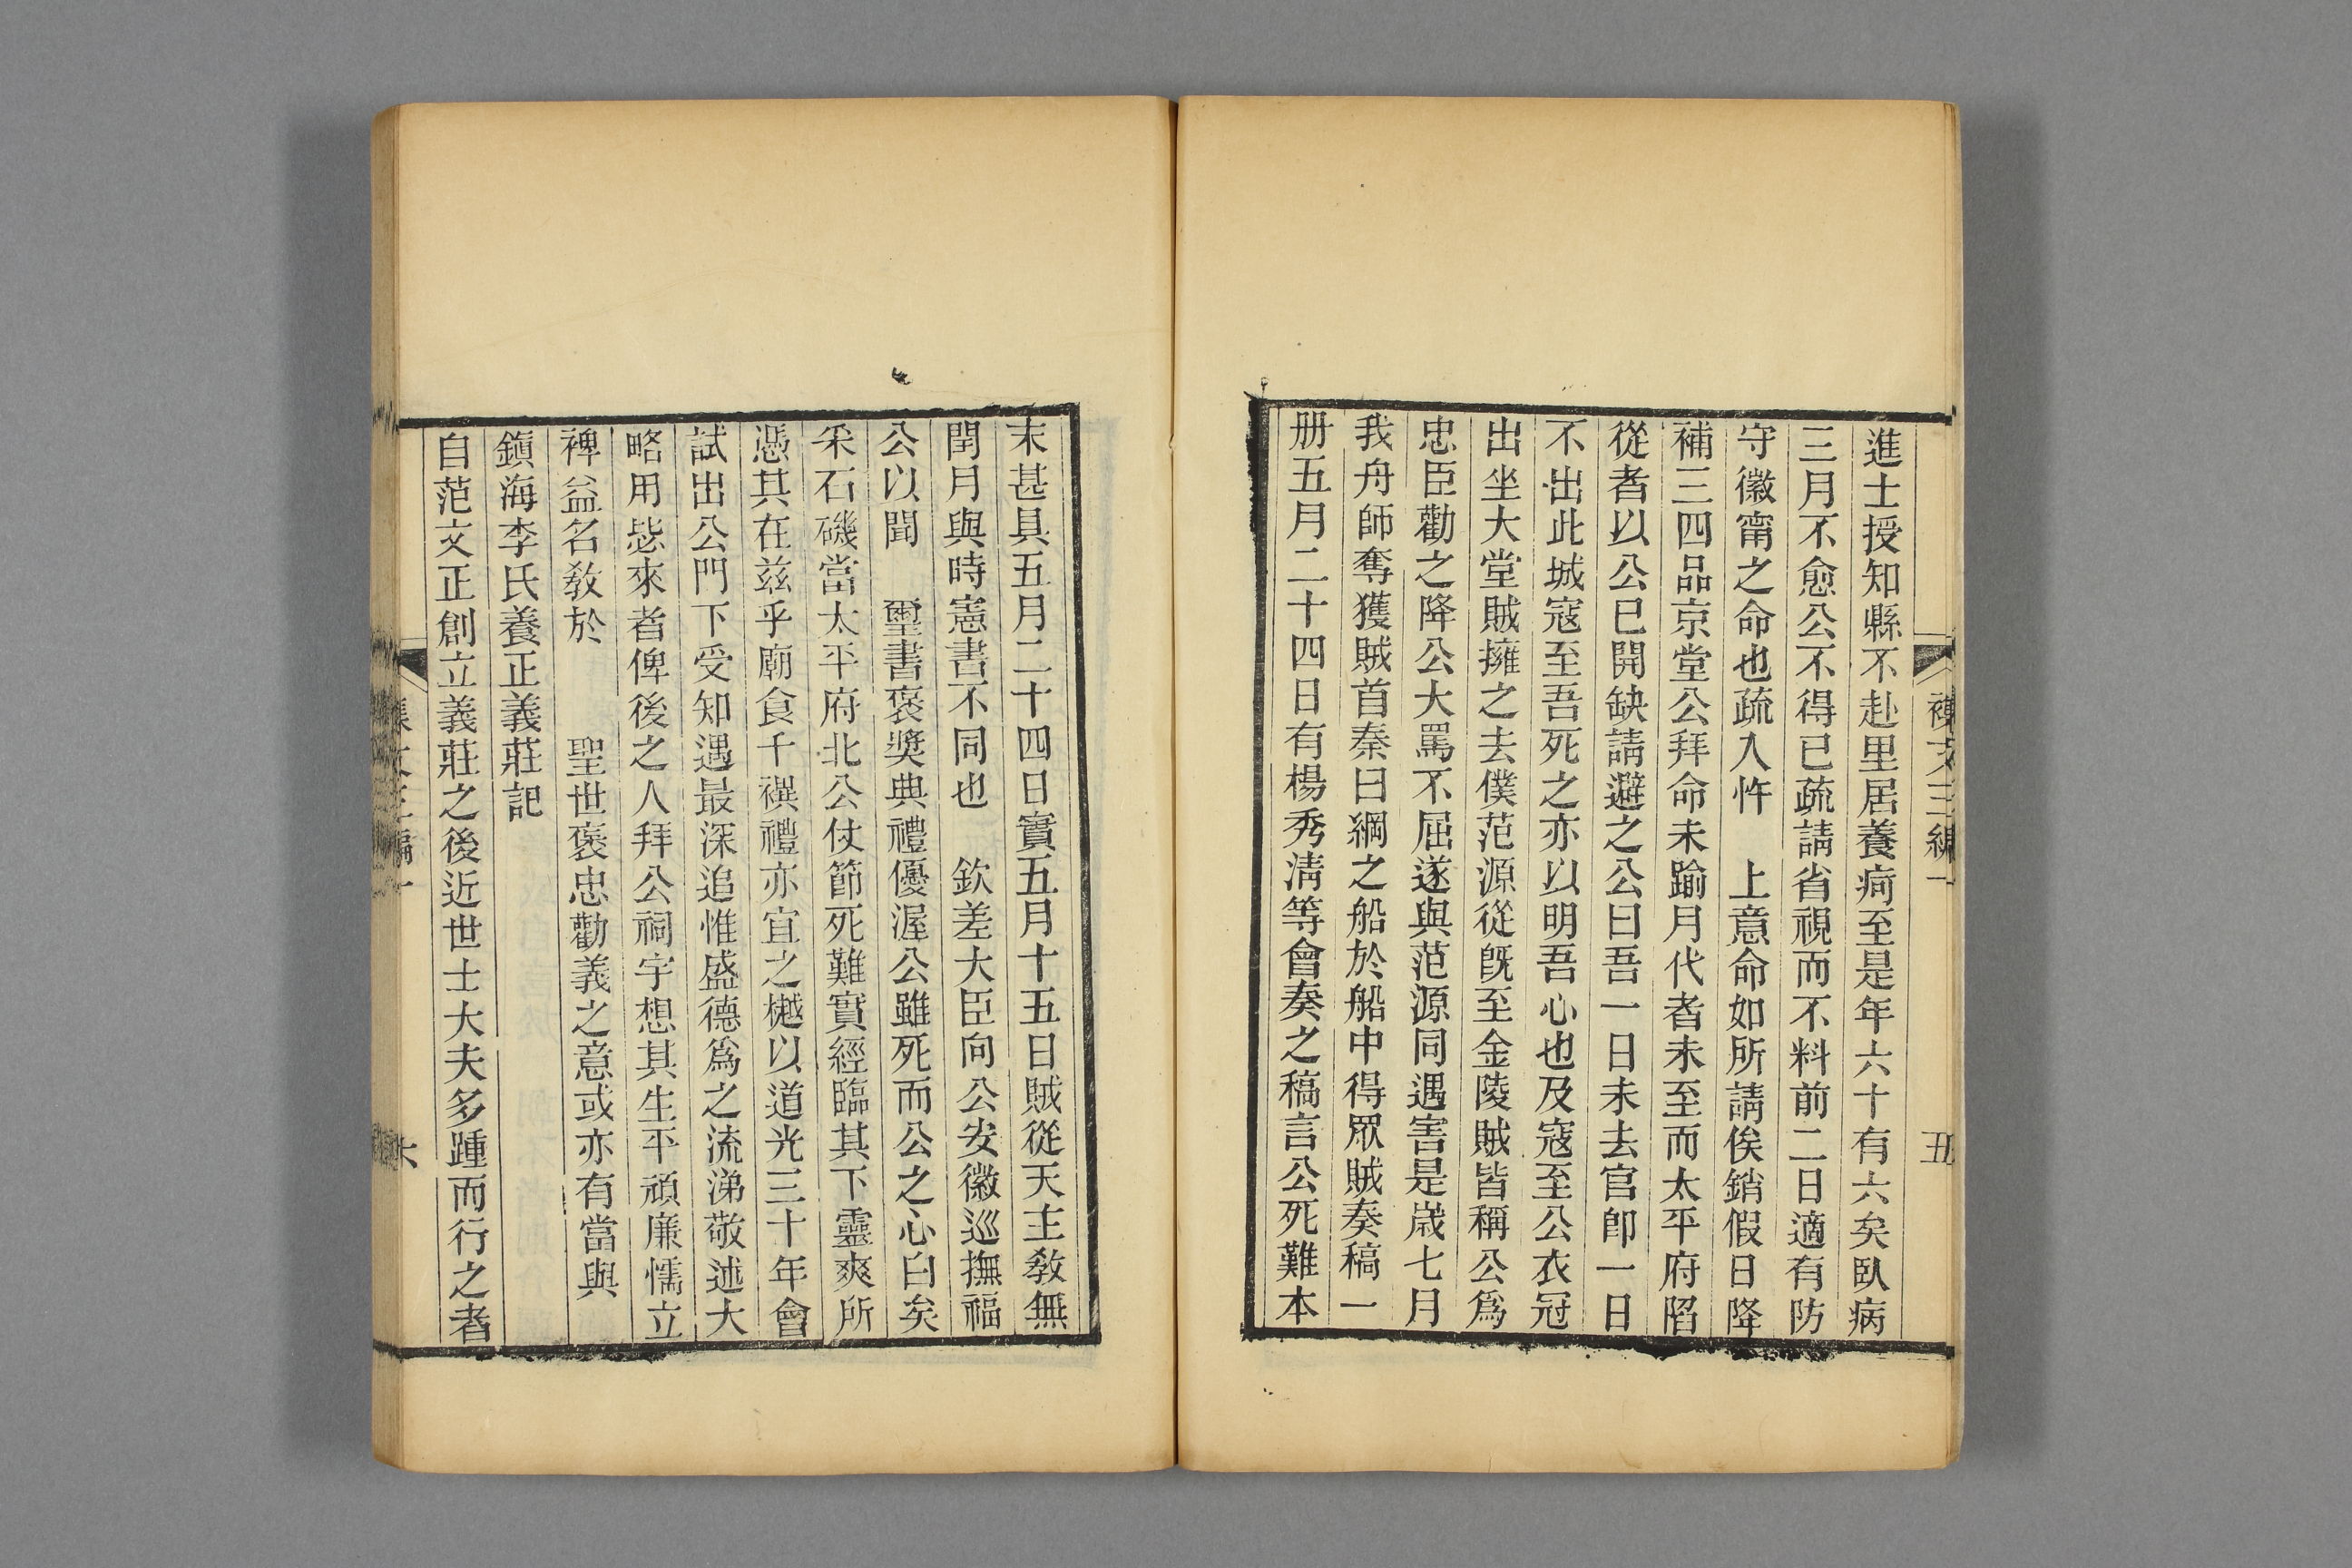 襍文三編一
五
進士授知縣不赴里居養疴至是年六十有六矣臥病
三月不愈公不得已疏請省視而不料前二日適有防
守徽甯之命也疏入忤　上意命如所請俟銷假日降
補三四品京堂公拜命未踰月代者未至而太平府陷
從者以公已開缺請避之公曰吾一日未去官卽一日
不出此城寇至吾死之亦以明吾心也及寇至公衣冠
出坐大堂賊擁之去僕范源從旣至金陵賊皆稱公爲
忠臣勸之降公大罵不屈遂與范源同遇害是歲七月
我舟師奪獲賊首秦日綱之船於船中得眾賊奏稿一
册五月二十四日有楊秀淸等會奏之稿言公死難本
末甚具五月二十四日實五月十五日賊從天主敎無
閏月與時憲書不同也　欽差大臣向公安徽巡撫福
公以聞　璽書褒奬典禮優渥公雖死而公之心白矣
采石磯當太平府北公仗節死難實經臨其下靈爽所
憑其在茲乎廟食千禩禮亦宜之樾以道光三十年會
試出公門下受知遇最深追惟盛德爲之流涕敬述大
略用毖來者俾後之人拜公祠宇想其生平頑廉懦立
裨益名敎於　　聖世褒忠勸義之意或亦有當與
鎭海李氏養正義莊記
自范文正創立義莊之後近世士大夫多踵而行之者
文三編一
六